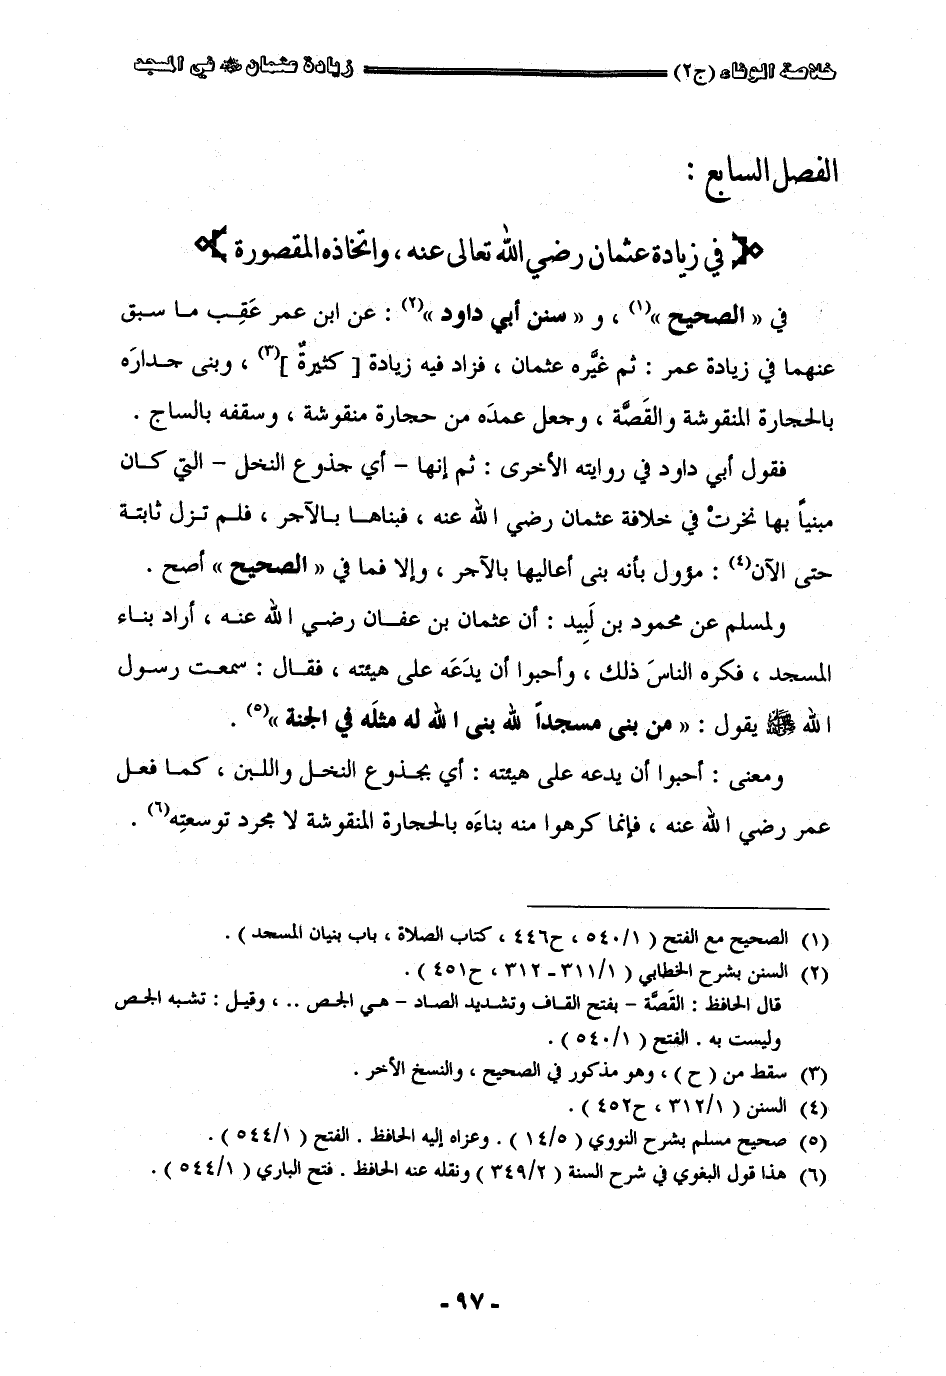 خلاصة الوفاء (ج٢) زيادة عثمان ﷺ في المسجد
الفصل السابع :
في زيادة عثمان رضي الله تعالى عنه ، واتخاذه المقصورة
في « الصحيح »(١) ، و « سنن أبي داود »(٢) : عن ابن عمر عَقِب ما سبق
عنهما في زيادة عمر : ثم غيَّره عثمان ، فزاد فيه زيادة [ كثيرةٌ ](٣) ، وبنى جدارَه
بالحجارة المنقوشة والقَصَّة ، وجعل عمدَه من حجارة منقوشة ، وسقفه بالساج .
فقول أبي داود في روايته الأخرى : ثم إنها - أي جذوع النخل - التي كان
مبنياً بها نخرتْ في خلافة عثمان رضي الله عنه ، فبناها بالآجر ، فلم تزل ثابتة
حتى الآن(٤) : مؤول بأنه بنى أعاليها بالآجر ، وإلا فما في « الصحيح » أصح .
ولمسلم عن محمود بن لَبِيد : أن عثمان بن عفان رضي الله عنه ، أراد بناء
المسجد ، فكره الناسَ ذلك ، وأحبوا أن يدَعَه على هيئته ، فقال : سمعت رسول
الله ﷺ يقول : « من بنى مسجداً لله بنى الله له مثلَه في الجنة »(٥) .
ومعنى : أحبوا أن يدعه على هيئته : أي بجذوع النخل واللبن ، كما فعل
عمر رضي الله عنه ، فإنما كرهوا منه بناءَه بالحجارة المنقوشة لا مجرد توسعتِه(٦) .
(١) الصحيح مع الفتح ( ٥٤٠/١ ، ح٤٤٦ ، كتاب الصلاة ، باب بنيان المسجد ) .
(٢) السنن بشرح الخطابي ( ٣١١/١ - ٣١٢ ، ح٤٥١ ) .
قال الحافظ : القَصَّة - بفتح القاف وتشديد الصاد - هي الجص .. ، وقيل : تشبه الجص
وليست به . الفتح ( ٥٤٠/١ ) .
(٣) سقط من ( ح ) ، وهو مذكور في الصحيح ، والنسخ الأخر .
(٤) السنن ( ٣١٢/١ ، ح٤٥٢ ) .
(٥) صحيح مسلم بشرح النووي ( ١٤/٥ ) . وعزاه إليه الحافظ . الفتح ( ٥٤٤/١ ) .
(٦) هذا قول البغوي في شرح السنة ( ٣٤٩/٢ ) ونقله عنه الحافظ . فتح الباري ( ٥٤٤/١ ) .
- ٩٧ -